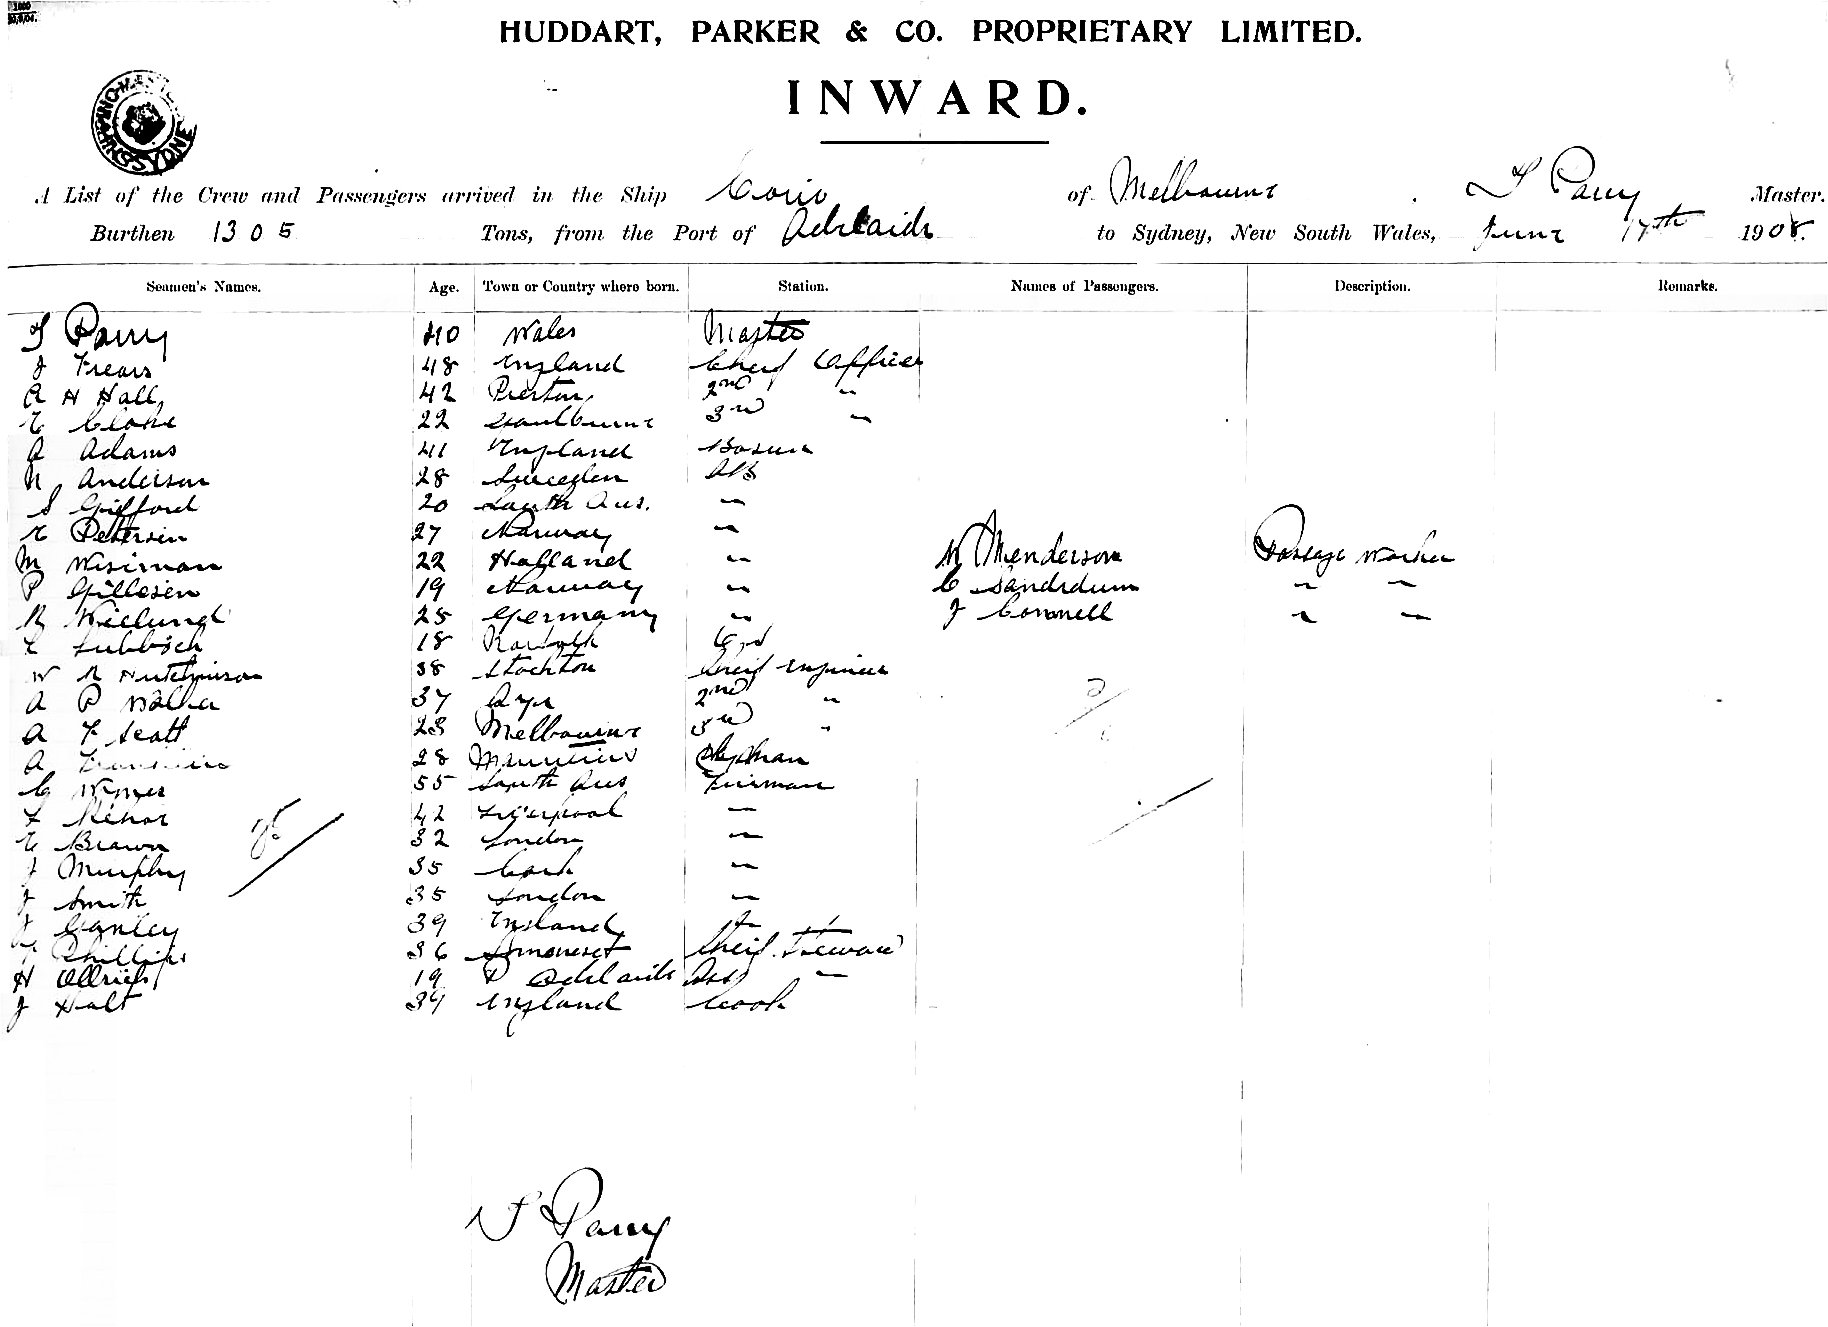 HUDDART, PARKER & CO. PROPRIETARY LIMITED.
INWARD.
A List of the Crew and Passengers arrived in the Ship Corio of Melbourne T Parry Master.
Burthen 1305 Tons, from the Port of Adelaide to Sydney, New South Wales, June 17th 1908.
Seamen's Names. Age. Town or Country where born. Station. Names of Passengers. Description. Remarks.
T Parry 40 Wales Master
J Frears 48 England Cheif Officer
A H Hall 42 Preston 2nd "
E Cloke 22 Goulburne 3rd "
A Adams 41 England Bosun
N Anderson 28 Sweeden AB
S Gifford 20 South Aus. "
E Petersen 27 Norway "
M Wisiman 22 Holland " W Menderson Passage Worker
P Gillesen 19 Norway " C Sandrdum " "
R Kielund 25 Germany " J Connell " "
L Lubbsch 18
W R Hutchinson 38 Stockton Cheif Engineer
A P Walker 37 Ayr 2nd "
A F Scott 23 Melbourne 3rd "
A 28 Mauritius
C 55 South Aus Fireman
F 42 Liverpool "
E Brown 32 London "
J Murphy 35 Cork "
J Smith 35 London "
J Ganley 39 England "
Phillips 36 Somerset Cheif Steward
H Ollrich 19 P Adelaide Ass "
J Holt 39 England Cook
25
3
T Parry
Master